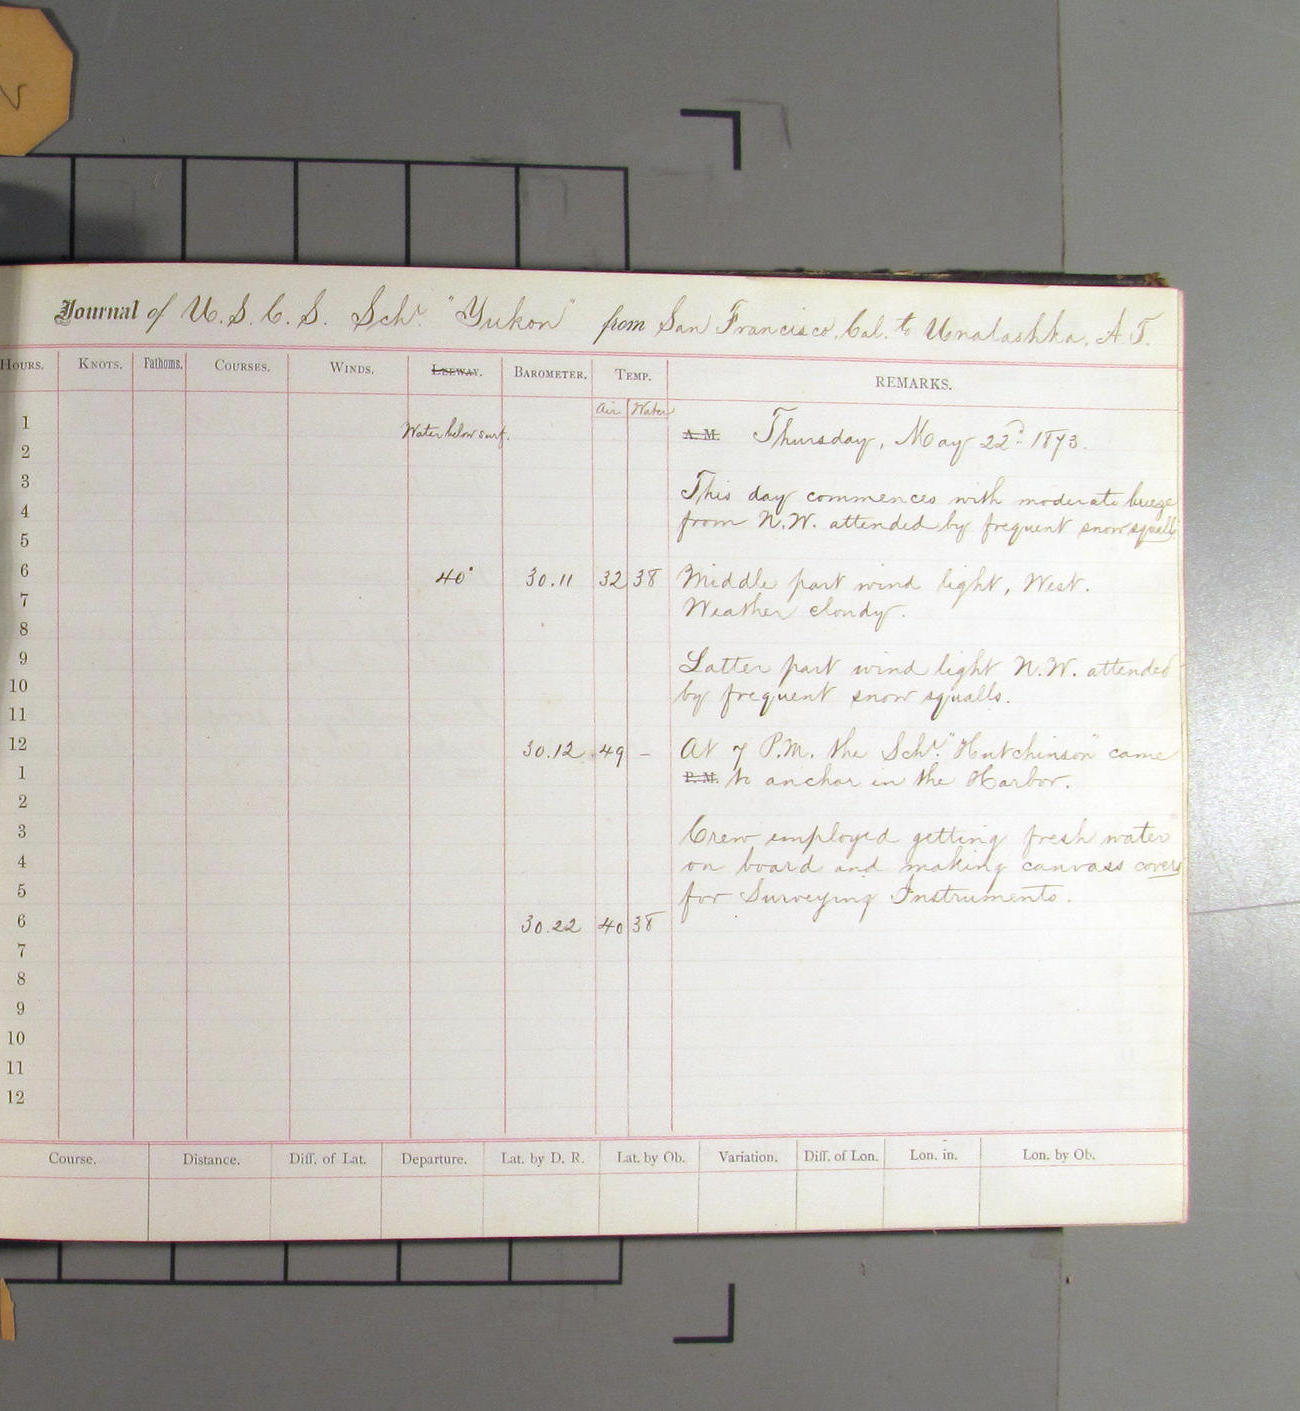 Journal of U.S.C.S. Schr. "Yukon" from San Francisco, Cal. to Unalashka, A.T.
HOURS. KNOTS. Fathoms. COURSES. WINDS. LEEWAY. BAROMETER. TEMP. REMARKS.
Air Water
1 Water below surf. A.M. Thursday, May 22d. 1873.
2
3 This day commences with moderate breeze
4 from N.W. attended by frequent snow squalls
5
6 40° 30.11 32 38 Middle part wind light, West.
7 Weather cloudy.
8
9 Latter part wind light N.W. attended
10 by frequent snow squalls.
11
12 30.12 49 – At 7 P.M. the Schr. "Hutchinson" came
1 P.M. to anchor in the Harbor.
2
3 Crew employed getting fresh water
4 on board and making canvass covers
5 for Surveying Instruments.
6 30.22 40 38
7
8
9
10
11
12
Course. Distance. Diff. of Lat. Departure. Lat. by D. R. Lat. by Ob. Variation. Diff. of Lon. Lon. in. Lon. by Ob.